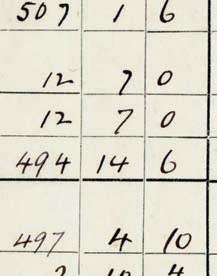 507 1 6
12 7 0
12 7 0
494 14 6
497 4 10